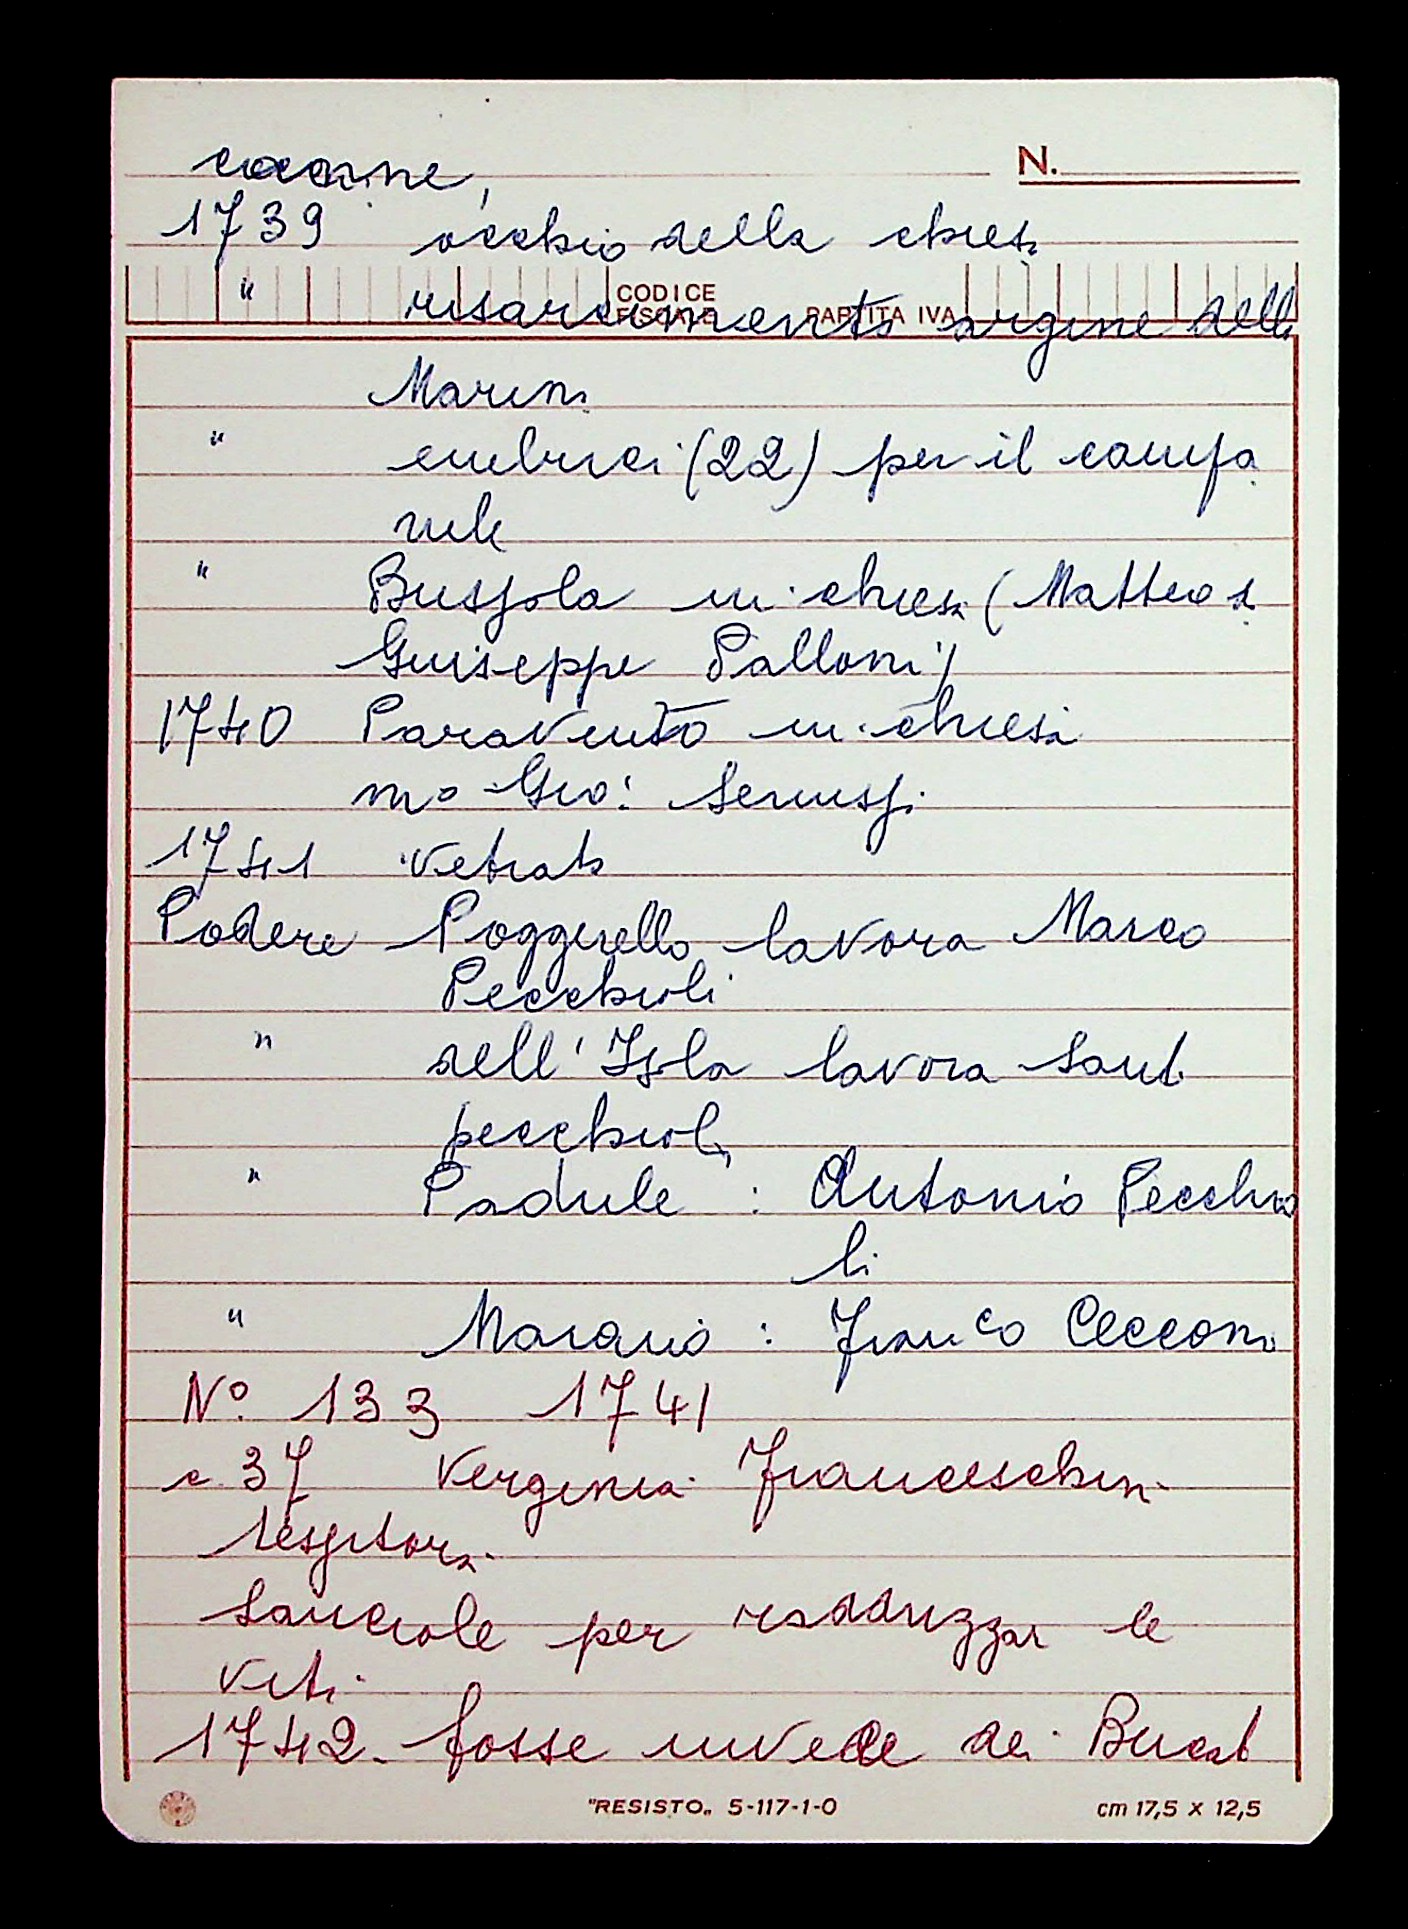 N.
1739 occhio della chiesa
CODICE FISCALE PARTITA IVA
" risarcimento argine della
Marina
" embrici (22) per il campa
nile
" Bussola in chiesa (Matteo e
Giuseppe Palloni)
1740 Paravento in chiesa
mo Gio:
1741 Vetrata
Podere Poggirello lavora Marco
Pecchioli
" dell'Isola lavora Santi
pecchioli
" Padule : Antonio Pecchio
li
" Marano : Franco Cecconi
No. 133 1741
c. 37 Verginia Franceschini
tessitora
Sanciole per raddrizzar le
viti
1742. fosse invece dei Bucati
"RESISTO" 5-117-1-0 cm 17,5 x 12,5